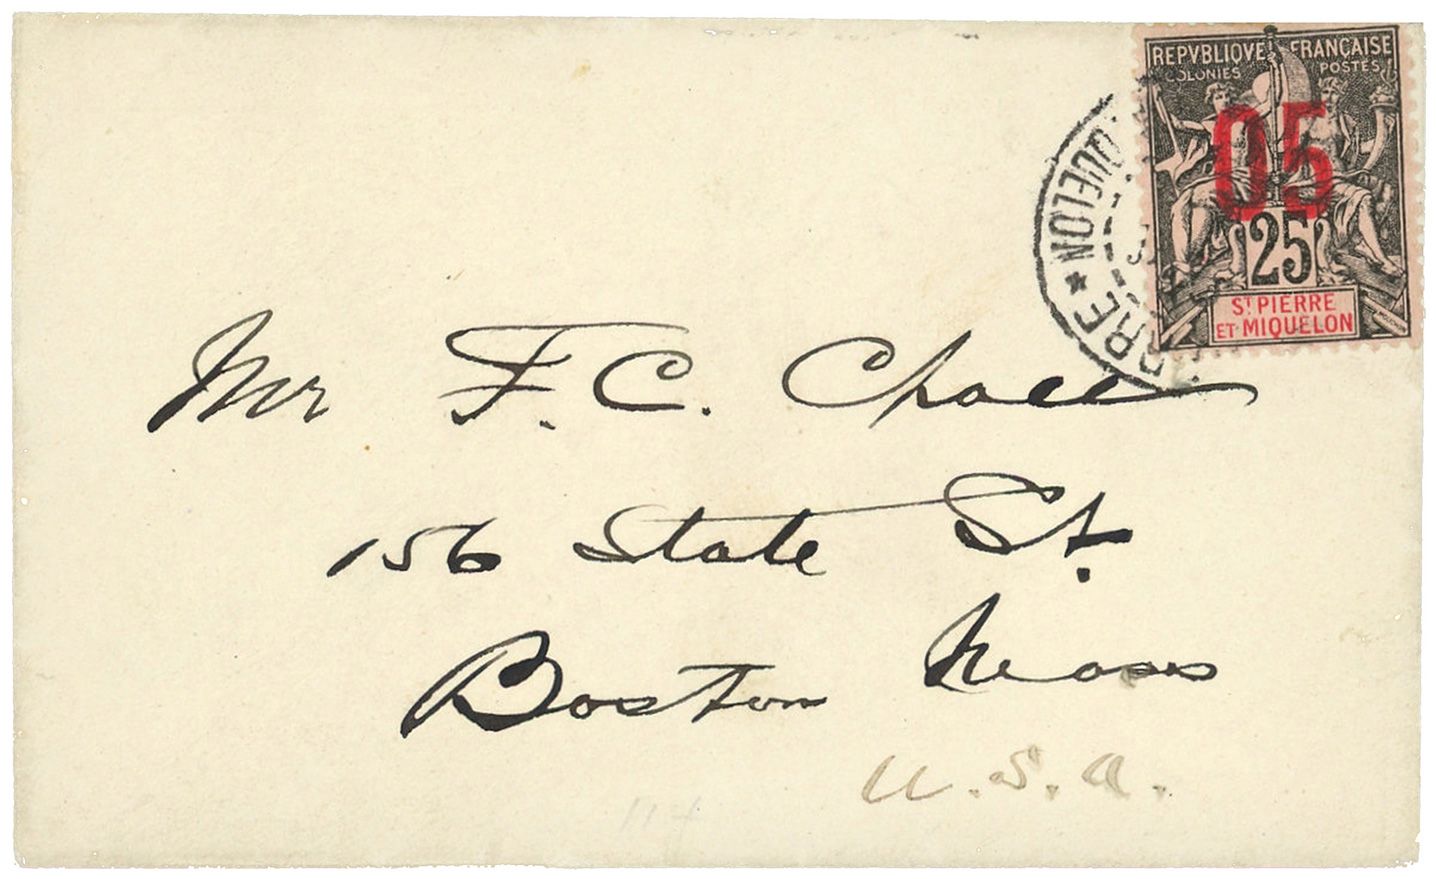 REPVBLIQVE FRANÇAISE
COLONIES POSTES
05
25
ST PIERRE
ET MIQUELON
QUELON * RRE
Mr F. C. Chace
156 State St.
Boston Mass
U.S.A.
114